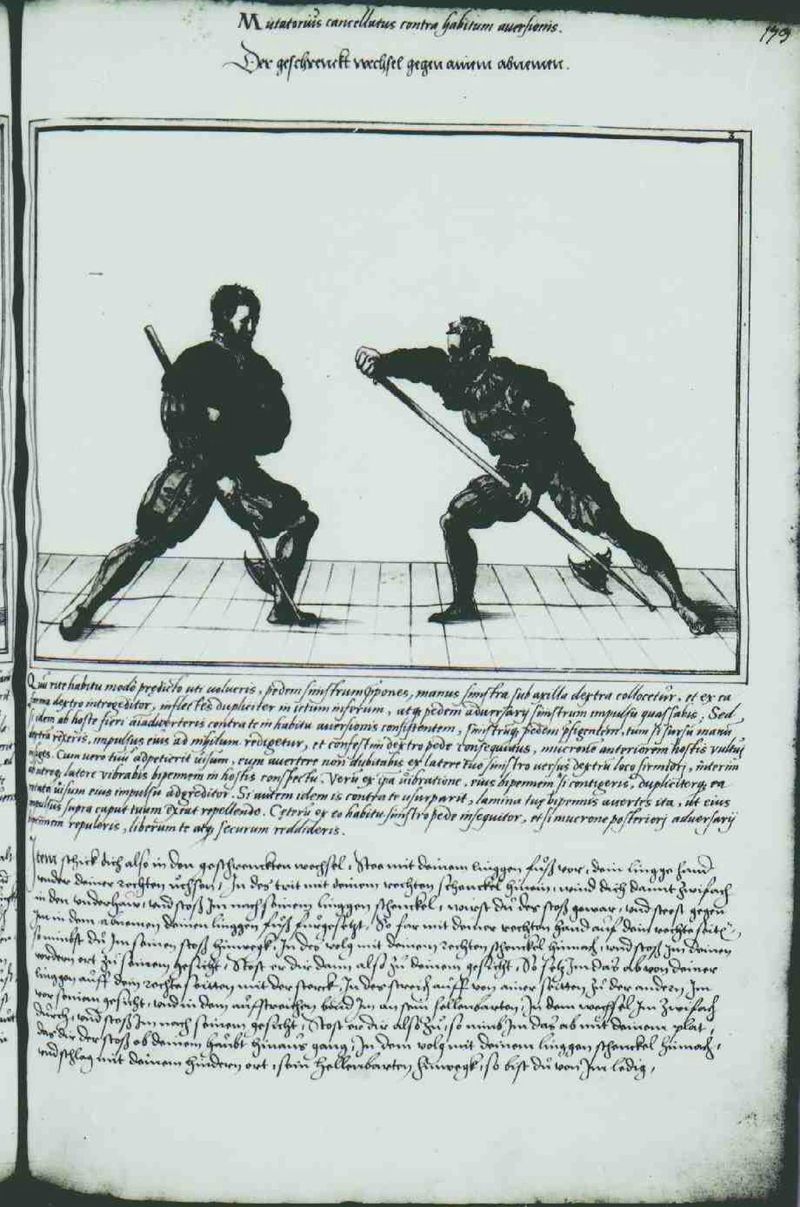 Mutatorius cancellatus contra habitum aversionis.
179
Der geschrenckt wechsel gegen ainem abnemen.
Qui rite habitu modo predicto uti volueris, pedem sinistrum pones, manus sinistra sub axilla dextra collocetur, et ex ea
dextro introgreditor, inflectes dupliciter in ictum inferum, atque pedem adversarij sinistrum impulsu quassabis. Sed
si idem ab hoste fieri animadverteris contra te in habitu aversionis consistentem, sinistrumque pedem tum si rursus manu
dextra rexeris, impulsus eius ad nihilum redigetur, et confestim dextro pede consequutus, mucrone anteriorem hostis vultui
Cum vero tuum adpetierit visum, eum avertere non dubitabis ex latere tuo sinistro versus dextrum loco firmiori, interim
utroque latere vibrabis bipennem in hostis conspectu. Verum ex ipsa vibratione, eius bipennem si contigeris, dupliciterque ea
visum eius impulsu adgreditor. Si autem idem is contra te usurparit, lamina tuae bipennis avertes ita, ut eius
impulsus supra caput tuum exeat repellendo. Ceterum ex eo habitu sinistro pede insequitor, et si mucrone posteriori adversarij
bipennem repuleris, liberum te atque securum reddideris.
Item schick dich also in den geschrenckten wechsel, Stee mit deinem linggen fuß vor, dein lingge hand
under deiner rechten uchsen, In des trit mit deinem rechten schenckel hinein, wind dich damit zwifach
in den underhaw, und stoß Im nach seinem linggen schenckel, wirst du des stoß gewar, und steest gegen
Im in dem abnemen deinen linggen fuß furgesetzt, So far mit deiner rechten hand auf dein rechte seiten
so nimbst du Im seinen stoß hinwegk, In des volg mit deinem rechten schenckel hinnach, und stoß Im deinen
vordern ort zu seinem gesicht, Stost er dir dann also zu deinem gesicht, So setz Im das ab von deiner
linggen auff dein rechte seitten mit der sterck, In des streich auff von ainer seitten zu der andern Im
vor seinem gesicht, und in dem auffstreichen bind Im an sein hellenbarten, In dem wechsel Im zwifach
durch, und stoß Im nach seinem gesicht, Stost er dir also zu, so nimb Im das ab mit deinem plat,
das dir der stoß ob deinem haubt hinaus gang, In dem volg mit deinem linggen schenckel hinnach,
und schlag mit deinem hindern ort sein hellenbarten hinwegk, so bist du von Im ledig,